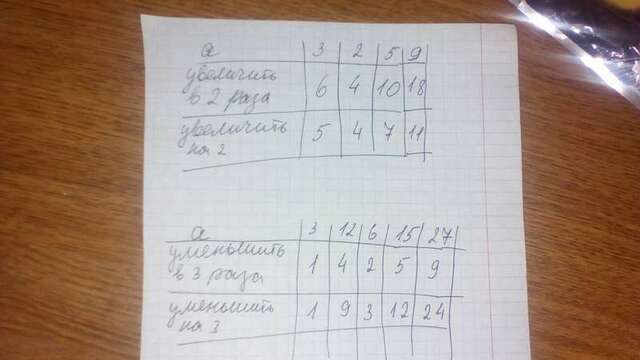 а 3 2 5 9
увеличить
в 2 раза 6 4 10 18
увеличить
на 2 5 4 7 11
а 3 12 6 15 27
уменьшить
в 3 раза 1 4 2 5 9
уменьшить
на 3 1 9 3 12 24